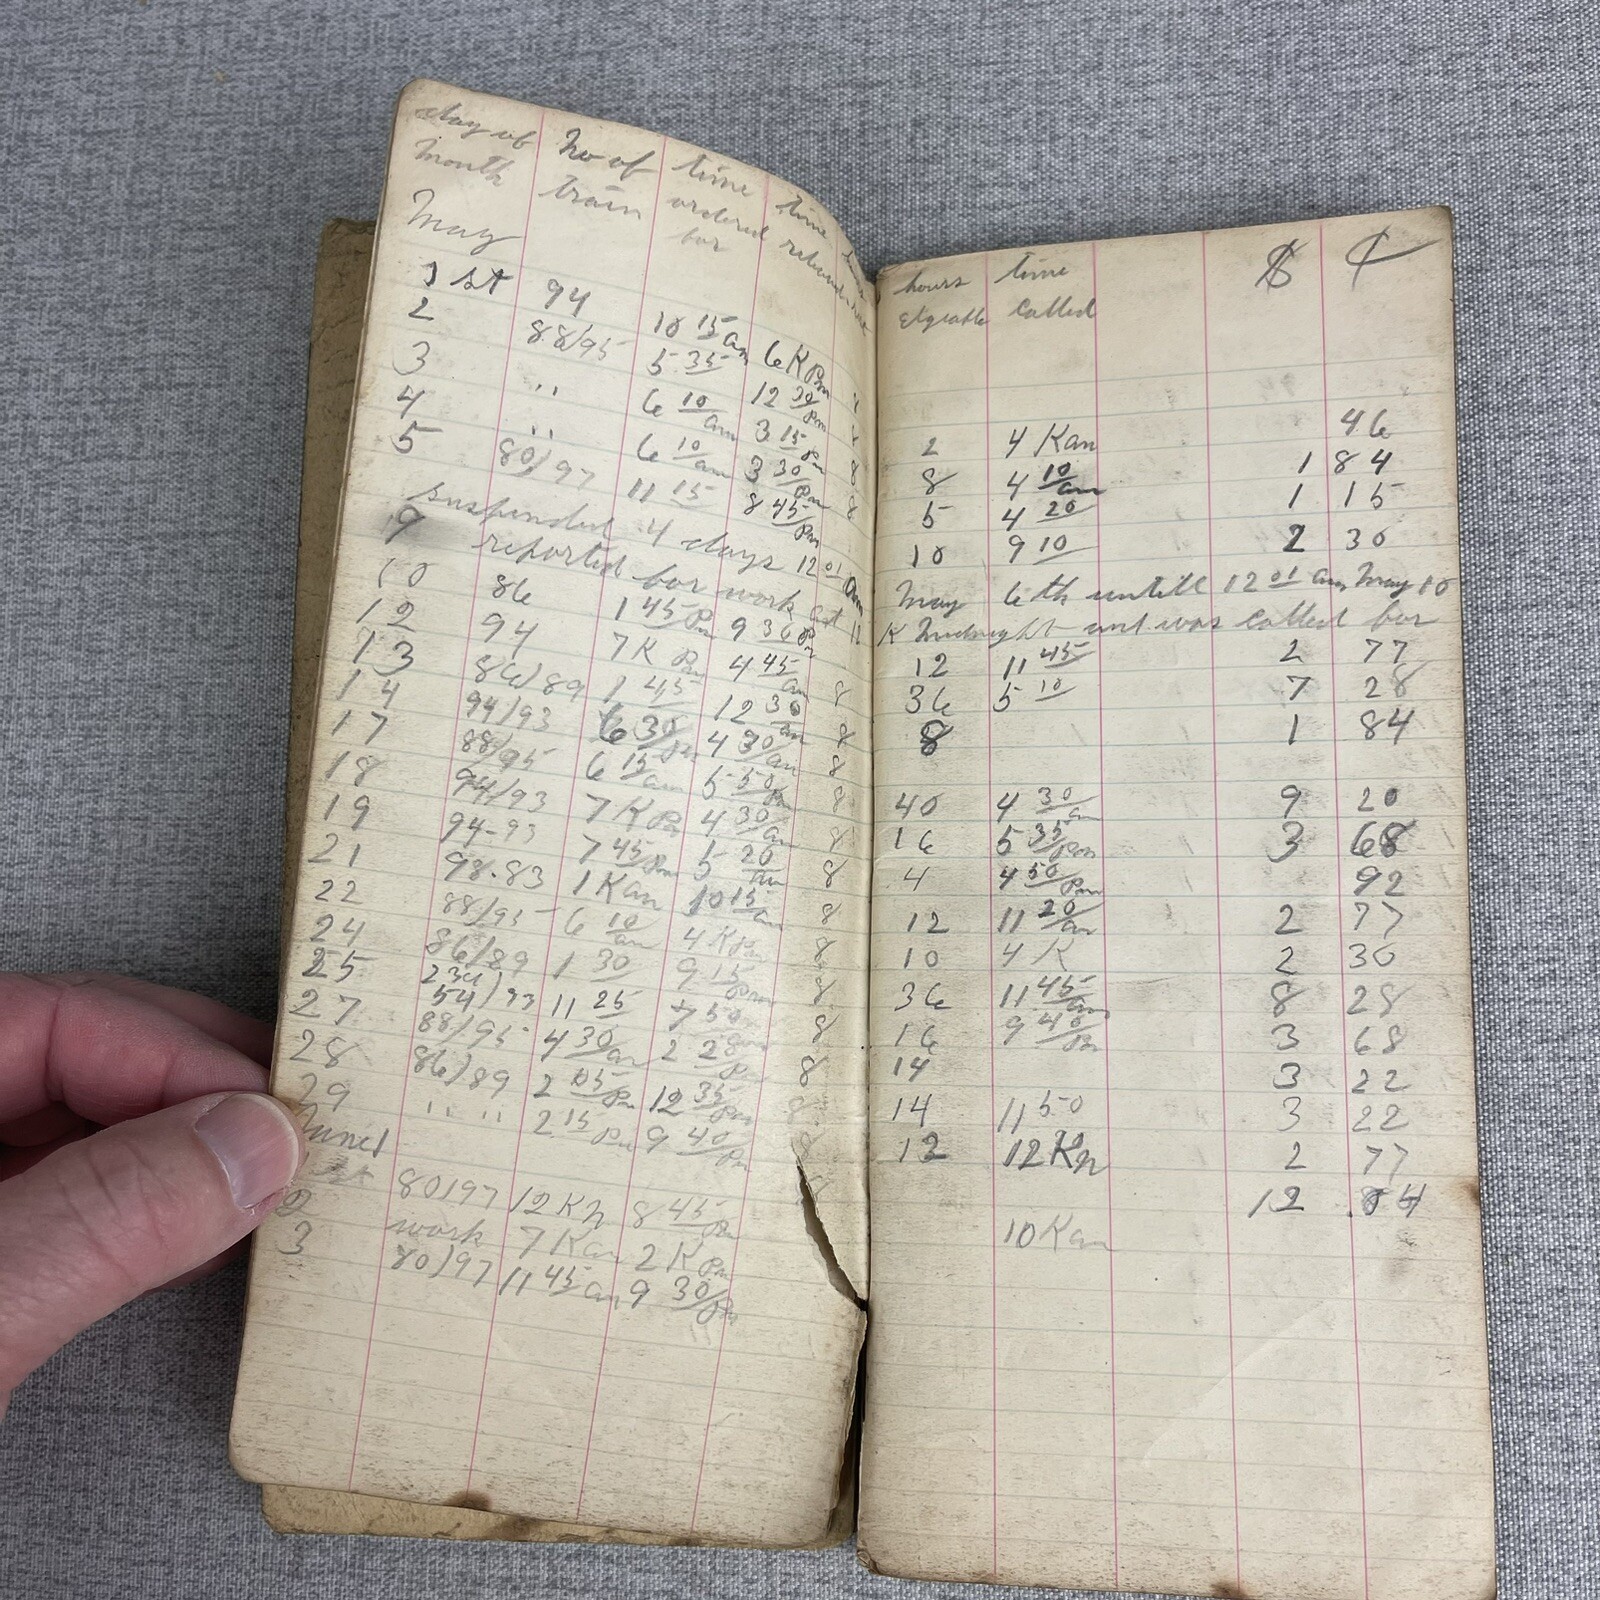 day of No of time time
Month train ordered
for
May
1 st 94 10 15 am 6 K Pm
2 88/95 5 35 12 30 Pm
3 " 6 10 am 3 15 Pm 8
4 " 6 10 am 3 30 Pm 8
5 80/97 11 15 8 45 Pm 8
suspended 4 days 12 01 am
9 reported for work at 12
10 86 1 45 Pm 9 30 Pm
12 94 7 K Pm 4 45 am 8
13 86/89 1 45 12 30 am 8
14 94/93 6 30 Pm 4 30 am 8
17 88/95 6 15 am 5 50 Pm 8
18 94/93 7 K Pm 4 30 am 8
19 94-93 7 45 Pm 5 20 am 8
21 98.83 1 K am 10 15 am 8
22 88/95 6 10 am 4 K Pm 8
24 86/89 1 30 9 15 Pm 8
25 54/93 11 25 7 50 8
27 88/95 4 30 am 2 28 Pm 8
28 86/89 2 05 Pm 12 35 8
29 " " 2 15 Pm 9 40 Pm 8
June 1
st 80/97 12 K N 8 45 Pm
2 work 7 K am 2 K Pm
3 80/97 11 45 am 9 30 Pm
hours time $ ¢
called
2 4 K am 46
8 4 10 am 1 84
5 4 20 1 15
10 9 10 2 30
May 6 th untill 12 01 am May 10
K Midnight and was called for
12 11 45 2 77
36 5 10 7 28
8 1 84
40 4 30 am 9 20
16 5 35 Pm 3 68
4 4 50 Pm 92
12 11 20 am 2 77
10 4 K 2 30
36 11 45 am 8 28
16 9 40 Pm 3 68
14 3 22
14 11 50 3 22
12 12 K N 2 77
12 .84
10 K am